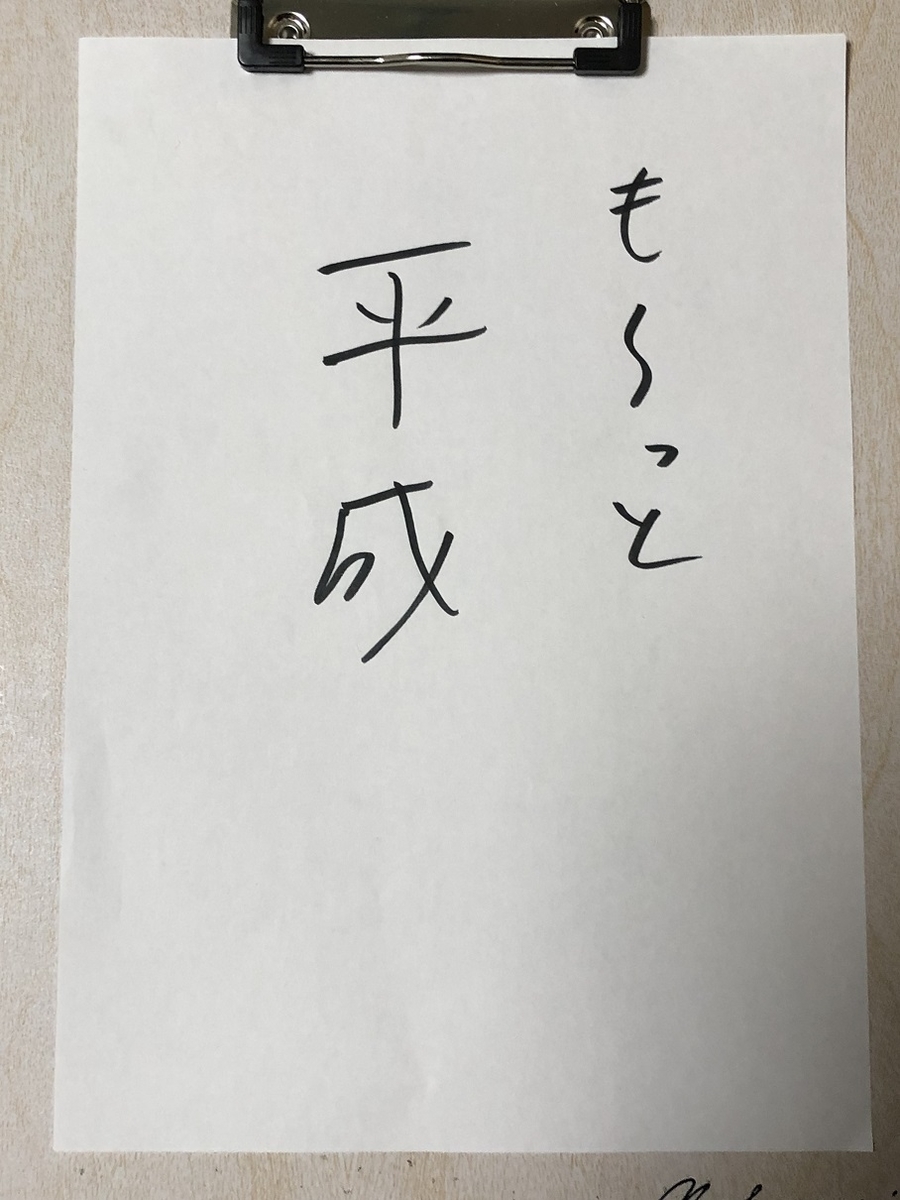 も〜っと
平成